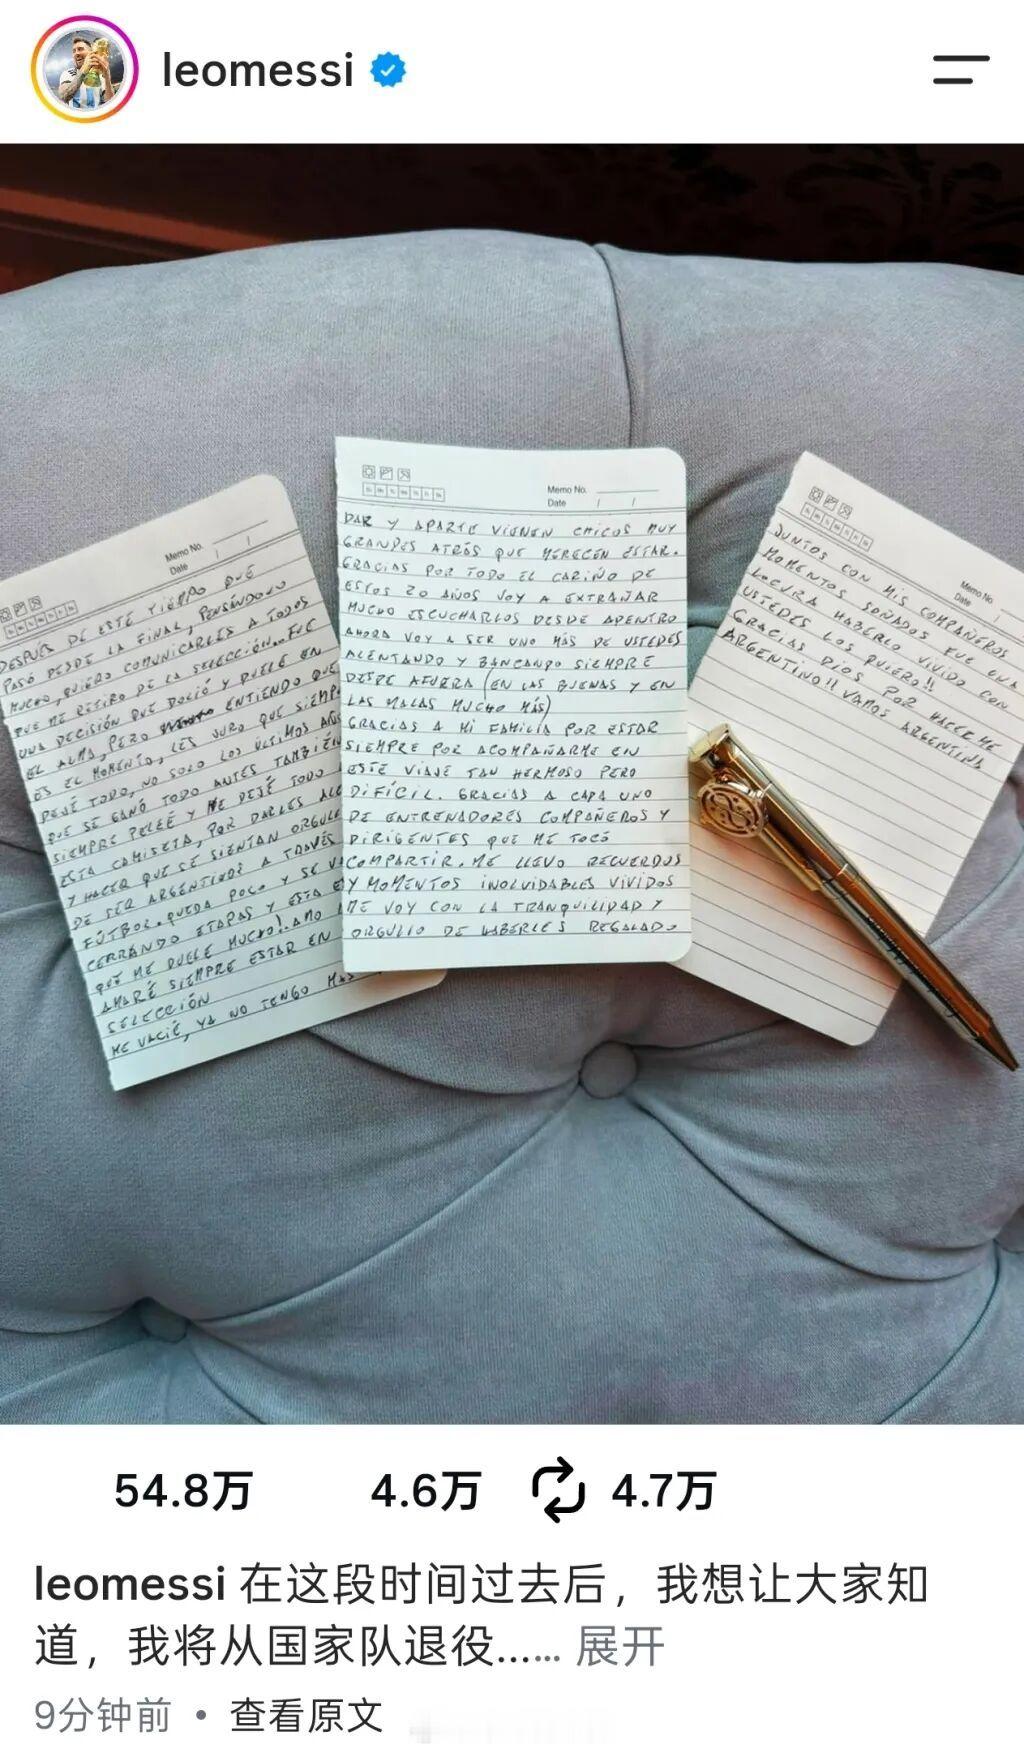 leomessi
Memo No.
Date / /
DESPUÉS DE ESTE TIEMPO QUE
PASÓ DESDE LA FINAL, PENSÁNDOLO
MUCHO, QUIERO COMUNICARLES A TODOS
QUE ME RETIRO DE LA SELECCIÓN.. FUE
UNA DECISIÓN QUE DOLIÓ Y DUELE EN
EL ALMA, PERO ENTIENDO QUE
ES EL MOMENTO, LES JURO QUE SIEMP
DEJÉ TODO, NO SOLO LOS ÚLTIMOS AÑOS
QUE SE GANÓ TODO ANTES TAMBIÉN
SIEMPRE PELEÉ Y ME DEJÉ TODO
ESTA CAMISETA, POR DARLES ALE
Y HACER QUE SE SIENTAN ORGULL
DE SER ARGENTINOS A TRAVÉS
FÚTBOL. QUEDA POCO Y SE VA
CERRANDO ETAPAS Y ESTA E
QUE ME DUELE MUCHO! AMO
AMARÉ SIEMPRE ESTAR EN
SELECCIÓN
ME VACIÉ, YA NO TENGO MÁS
Memo No.
Date / /
DAR Y APARTE VIENEN CHICOS MUY
GRANDES ATRÁS QUE MERECEN ESTAR.
GRACIAS POR TODO EL CARIÑO DE
ESTOS 20 AÑOS VOY A EXTRAÑAR
MUCHO ESCUCHARLOS DESDE ADENTRO
AHORA VOY A SER UNO MÁS DE USTEDES
ALENTANDO Y BANCANDO SIEMPRE
DESDE AFUERA (EN LAS BUENAS Y EN
LAS MALAS MUCHO MÁS)
GRACIAS A MI FAMILIA POR ESTAR
SIEMPRE POR ACOMPAÑARME EN
ESTE VIAJE TAN HERMOSO PERO
DIFÍCIL. GRACIAS A CADA UNO
DE ENTRENADORES COMPAÑEROS Y
DIRIGENTES QUE ME TOCÓ
COMPARTIR. ME LLEVO RECUERDOS
Y MOMENTOS INOLVIDABLES VIVIDOS
ME VOY CON LA TRANQUILIDAD Y
ORGULLO DE HABERLES REGALADO
Memo No.
Date / /
JUNTOS CON MIS COMPAÑEROS
MOMENTOS SOÑADOS FUE UNA
LOCURA HABERLO VIVIDO CON
USTEDES LOS QUIERO!!
GRACIAS DIOS POR HACERME
ARGENTINO!! VAMOS ARGENTINA
54.8万 4.6万 4.7万
leomessi 在这段时间过去后，我想让大家知
道，我将从国家队退役...... 展开
9分钟前 • 查看原文